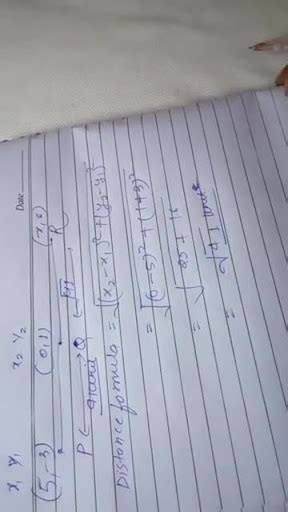 Date
x₁ y₁ x₂ y₂
(5,-3) (0,1) (x,6)
P Q √41 R
Distance formula = √(x₂-x₁)²+(y₂-y₁)²
= √(0-5)²+(1+3)²
= √25+16
= √41 units